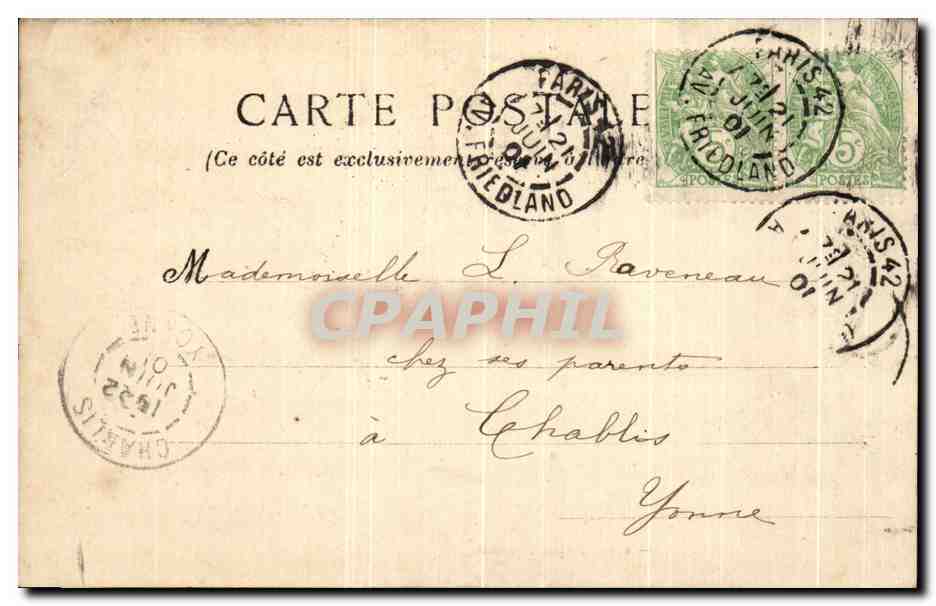 CARTE POSTALE
(Ce côté est exclusivement réservé à l'adresse
PARIS 42
7E 21
JUIN
01
AV. FRIEDLAND
PARIS 42
7E 21
JUIN
01
AV. FRIEDLAND
5c
POSTES
POSTES
PARIS 42
7E 21
JUIN
01
Mademoiselle L. Raveneau
CPAPHIL
chez ses parents
à Chablis
Yonne
CHABLIS
22
JUIN
01
YONNE